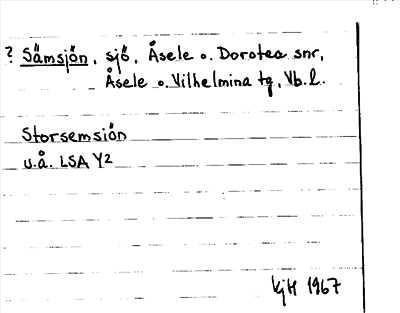 ? Sämsjön, sjö, Åsele o. Dorotea snr,
Åsele o. Vilhelmina tg, Vb. l.
Storsemsjön
u.å. LSA Y2
KjH 1967